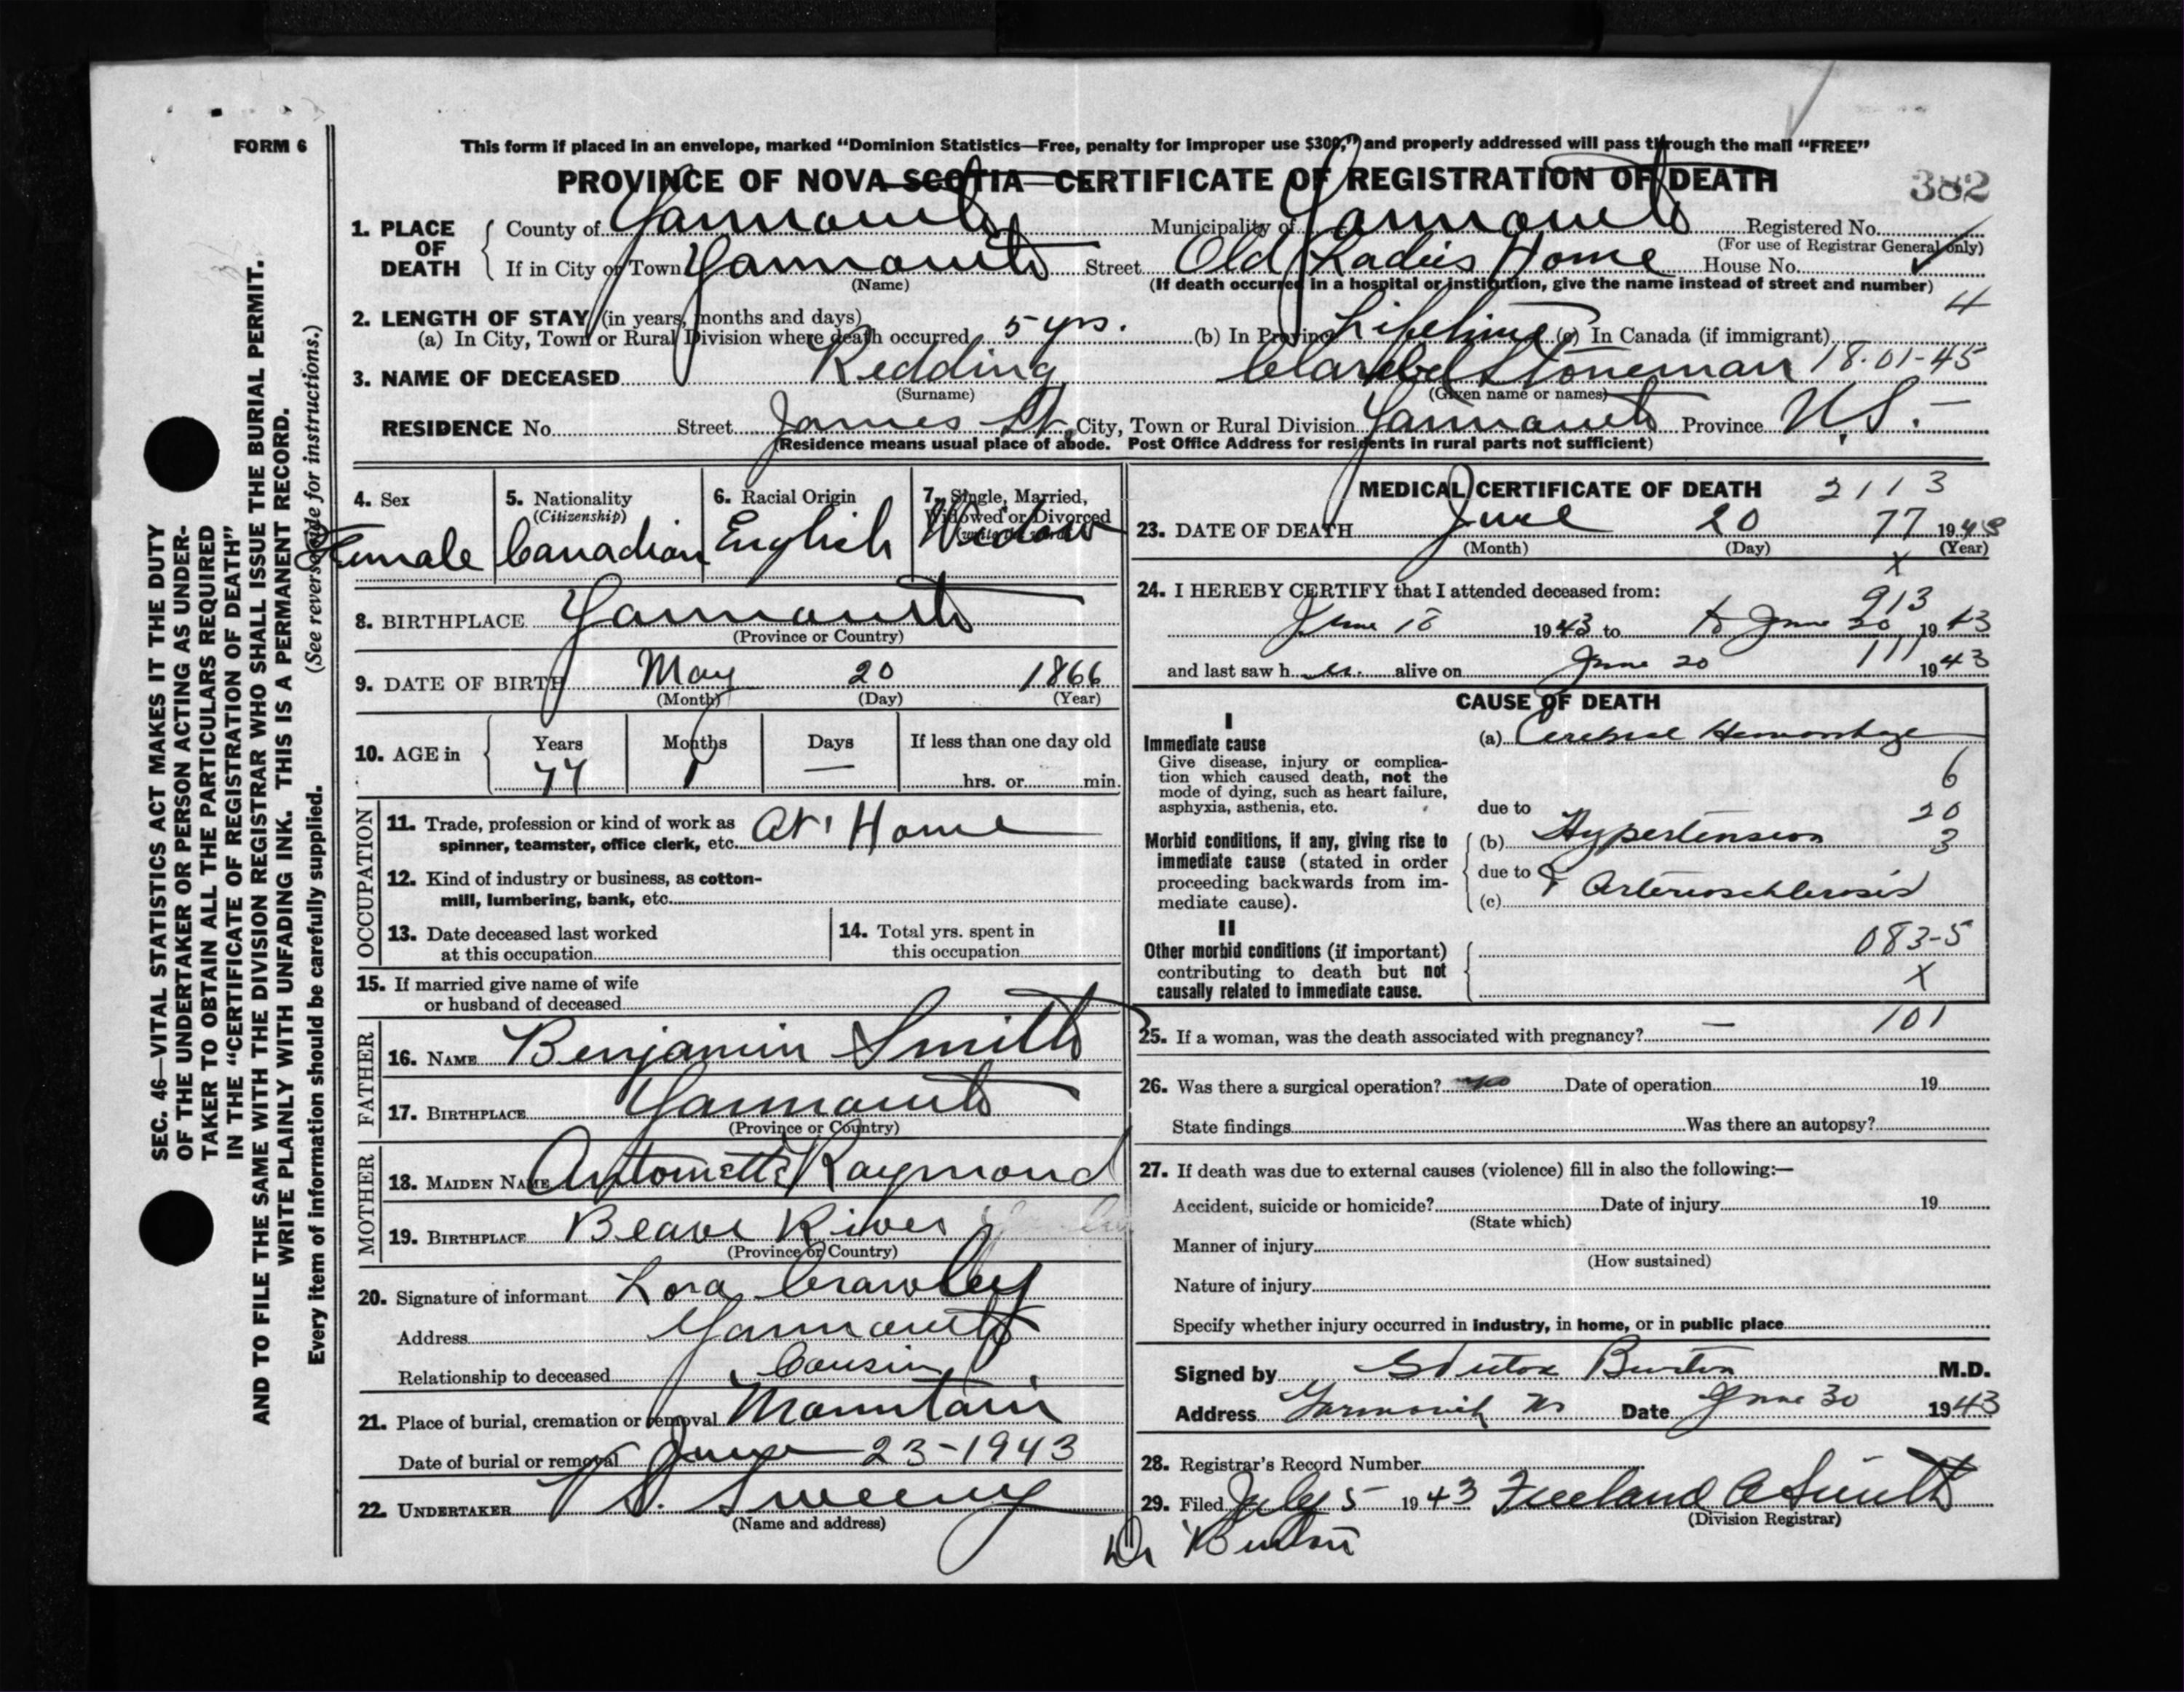 FORM 6
This form if placed in an envelope, marked “Dominion Statistics—Free, penalty for improper use $300,” and properly addressed will pass through the mail “FREE”
PROVINCE OF NOVA SCOTIA—CERTIFICATE OF REGISTRATION OF DEATH
382
1. PLACE OF DEATH
County of Yarmouth Municipality of Yarmouth Registered No.
(For use of Registrar General only)
If in City or Town Yarmouth Street Old Ladies Home House No.
(Name) (If death occurred in a hospital or institution, give the name instead of street and number)
4
2. LENGTH OF STAY (in years, months and days)
(a) In City, Town or Rural Division where death occurred 5 yrs. (b) In Province Lifetime (c) In Canada (if immigrant)
3. NAME OF DECEASED Redding Stoneman 18-01-45
(Surname) (Given name or names)
RESIDENCE No. Street James St. City, Town or Rural Division Yarmouth Province N.S.—
(Residence means usual place of abode. Post Office Address for residents in rural parts not sufficient)
4. Sex
Female
5. Nationality
(Citizenship)
Canadian
6. Racial Origin
English
7. Single, Married,
Widowed or Divorced
Widow
8. BIRTHPLACE Yarmouth
(Province or Country)
9. DATE OF BIRTH May 20 1866
(Month) (Day) (Year)
10. AGE in
Years Months Days If less than one day old
77 1 — hrs. or min.
OCCUPATION
11. Trade, profession or kind of work as
spinner, teamster, office clerk, etc. At Home
12. Kind of industry or business, as cotton-
mill, lumbering, bank, etc.
13. Date deceased last worked
at this occupation
14. Total yrs. spent in
this occupation
15. If married give name of wife
or husband of deceased
FATHER
16. NAME Benjamin Smith
17. BIRTHPLACE Yarmouth
(Province or Country)
MOTHER
18. MAIDEN NAME Antonette Raymond
19. BIRTHPLACE Beaver River
(Province or Country)
20. Signature of informant Lora Crawley
Address Yarmouth
Relationship to deceased Cousin
21. Place of burial, cremation or removal Mountain
Date of burial or removal June 23-1943
22. UNDERTAKER V S. Sweeny
(Name and address)
MEDICAL CERTIFICATE OF DEATH 2113
23. DATE OF DEATH June 20 77 1943
(Month) (Day) (Year)
X
24. I HEREBY CERTIFY that I attended deceased from:
913
June 18 1943 to to June 20 1943
and last saw h er alive on June 20 111 1943
CAUSE OF DEATH
I
Immediate cause
Give disease, injury or complica-
tion which caused death, not the
mode of dying, such as heart failure,
asphyxia, asthenia, etc.
(a) Cerebral Hemorrhage
6
due to
20
Morbid conditions, if any, giving rise to
immediate cause (stated in order
proceeding backwards from im-
mediate cause).
(b) Hypertension 3
due to &
(c) Arterioschlerosis
II
Other morbid conditions (if important)
contributing to death but not
causally related to immediate cause.
083-5
X
25. If a woman, was the death associated with pregnancy? — 101
26. Was there a surgical operation? no Date of operation 19
State findings Was there an autopsy?
27. If death was due to external causes (violence) fill in also the following:—
Accident, suicide or homicide? Date of injury 19
(State which)
Manner of injury
(How sustained)
Nature of injury
Specify whether injury occurred in industry, in home, or in public place
Signed by Burton M.D.
Address Yarmouth NS Date June 30 1943
28. Registrar's Record Number
29. Filed July 5 1943 Freeland A Smith
(Division Registrar)
Dr Burton
SEC. 46—VITAL STATISTICS ACT MAKES IT THE DUTY
OF THE UNDERTAKER OR PERSON ACTING AS UNDER-
TAKER TO OBTAIN ALL THE PARTICULARS REQUIRED
IN THE “CERTIFICATE OF REGISTRATION OF DEATH”
AND TO FILE THE SAME WITH THE DIVISION REGISTRAR WHO SHALL ISSUE THE BURIAL PERMIT.
WRITE PLAINLY WITH UNFADING INK. THIS IS A PERMANENT RECORD.
Every item of information should be carefully supplied. (See reverse side for instructions.)